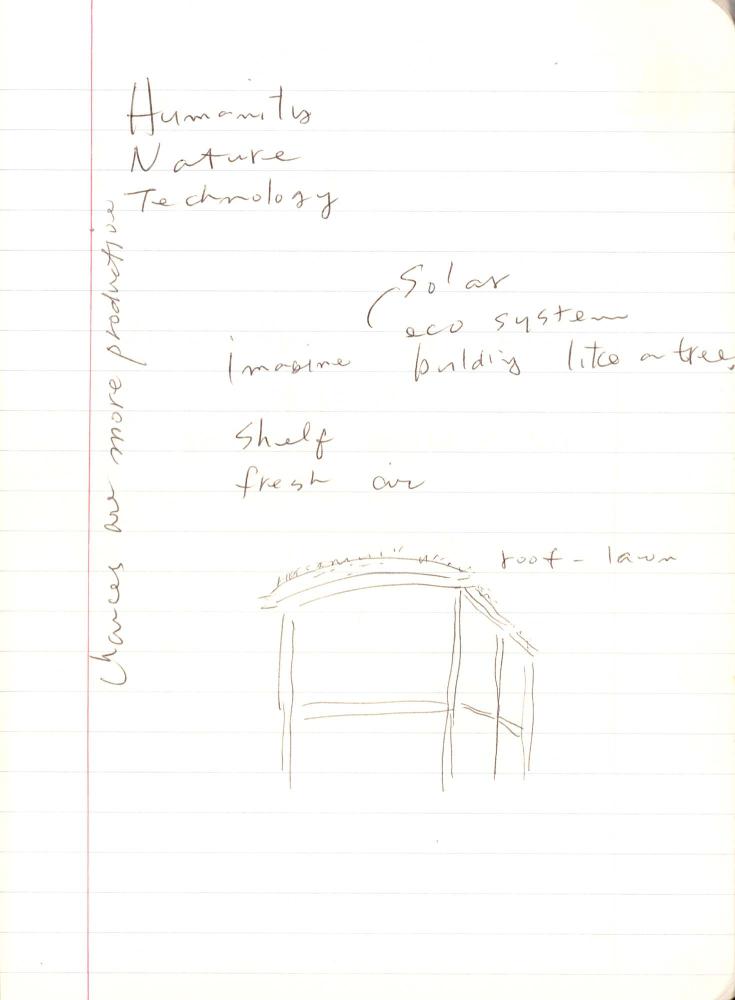 Humanity
Nature
Technology
Chances are more productive
Solar
eco system
imagine building like a tree,
shelf
fresh air
roof - lawn